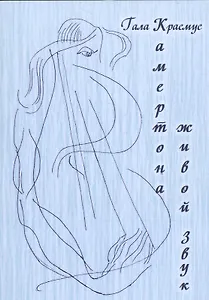 Гала Красмус
амертона
живой звук